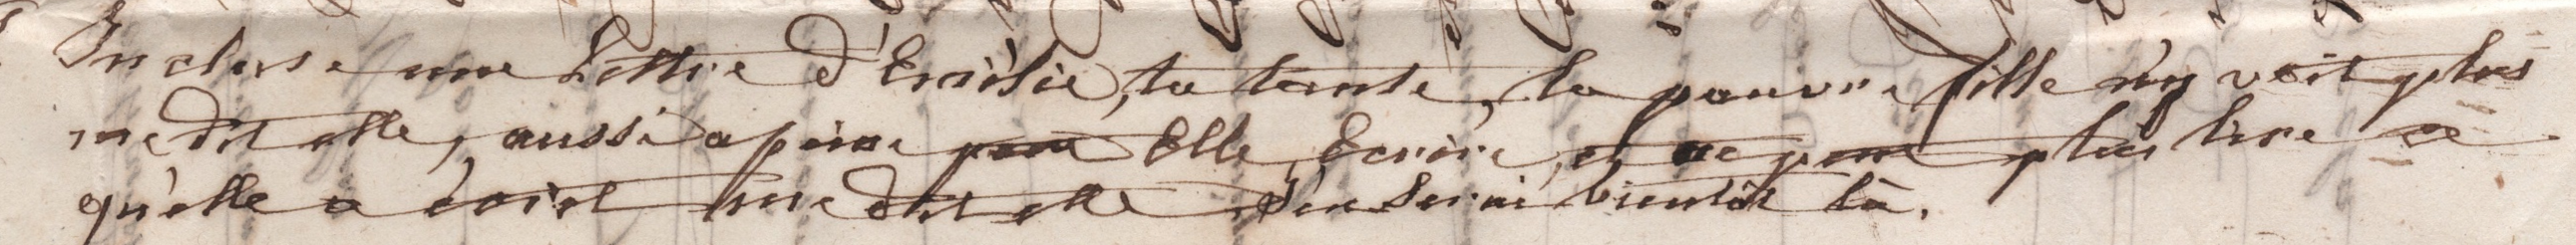 Incluse une Lettre d'Emélie, ta tante, la pauvre fille n'y voit plus
me dit elle, aussi a peine peut Elle Ecrire, et ne peut plus lire ce
qu'elle a écrit me dit elle J'en serai bientôt là.